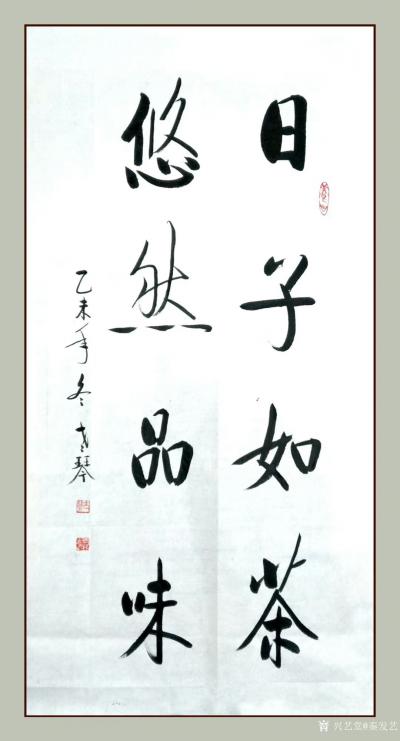 日子如茶
悠然品味
乙未年冬 琴
兴艺堂@秦发艺